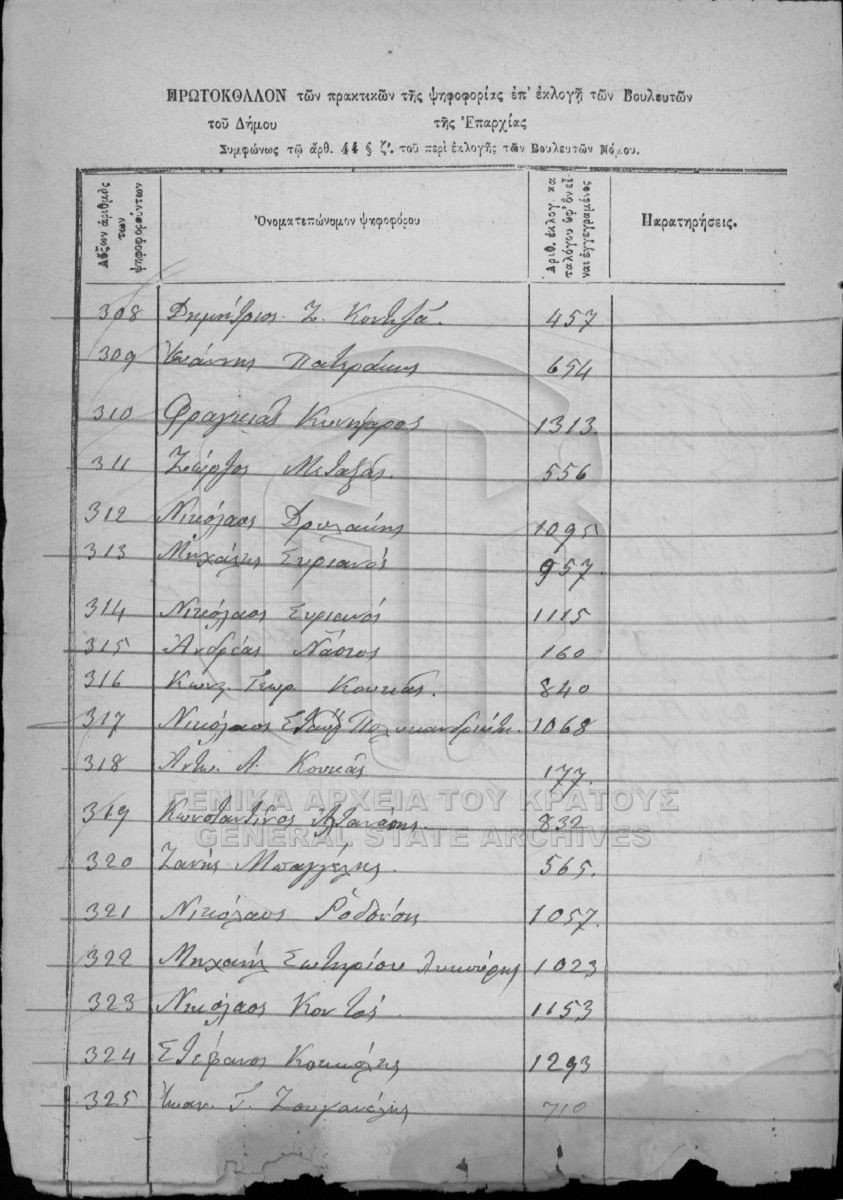 ΠΡΩΤΟΚΟΛΛΟΝ τῶν πρακτικῶν τῆς ψηφοφορίας ἐπ' ἐκλογῇ τῶν Βουλευτῶν
τοῦ Δήμου τῆς Ἐπαρχίας
Συμφώνως τῷ ἄρθ. 44 § ζ'. τοῦ περὶ ἐκλογῆς τῶν Βουλευτῶν Νόμου.
Αὔξων ἀριθμὸς τῶν ψηφοφορησάντων
Ὀνοματεπώνυμον ψηφοφόρου
Ἀριθ. ἐκλογ. καταλόγου ὑφ' ὃν εἶναι ἐγγεγραμμένος
Παρατηρήσεις.
308 Δημήτριος Ζ. Κοντιζά. 457
309 Ἰωάννης Πατεράκης 654
310 Φραγκιας 1313.
311 Ζώρζος Μεταξάς. 556
312 Νικόλαος Δρυλακης 1095
313 Μηχάλης Συριανός 957.
314 Νικόλαος Συριανός 1115
315 Ἀνδρέας Νάστος 160
316 Κωνς. Γεωρ. Κουκάς. 840
317 Νικόλαος Πολυκανδριώτης. 1068
318 Ἀντω. Α. Κουκάς 177.
319 Κωνσταντῖνος Ἀτανάσης. 832
ΓΕΝΙΚΑ ΑΡΧΕΙΑ ΤΟΥ ΚΡΑΤΟΥΣ
GENERAL STATE ARCHIVES
320 Ζανής Μπαγγέλης. 565.
321 Νικόλαος Ροδούσης 1057.
322 Μηχαήλ Σωτηρίου 1023
323 Νικόλαος Κοντός 1153
324 Στέφανος Κουκόλης 1293
325 Ἰωαν. Γ. Ζουγανέλης 710